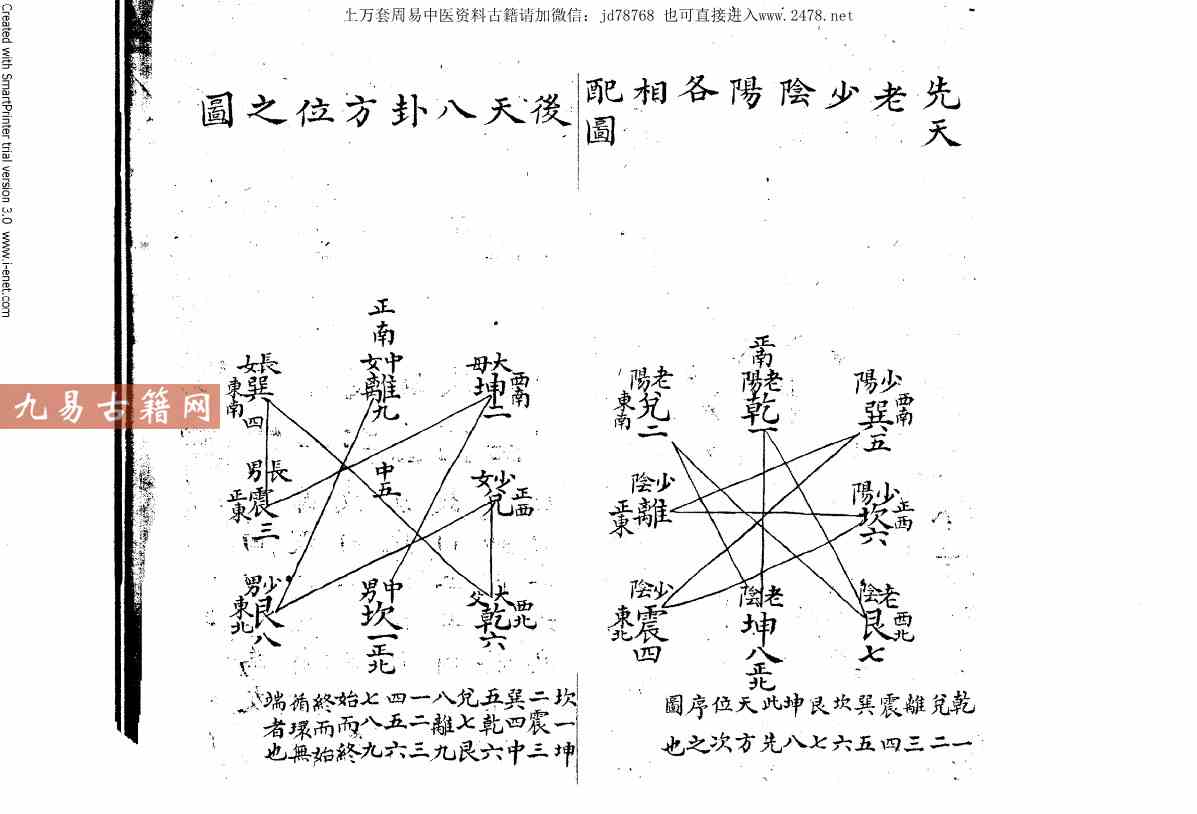 上万套周易中医资料古籍请加微信：jd78768 也可直接进入www.2478.net
Created with SmartPrinter trial version 3.0 www.i-enet.com
九易古籍网
先天老少陰陽各相配圖
正南
老陽
乾一
少陽
巽五
西南
老陽
兌二
東南
少陽
坎六
正西
少陰
離
正東
老陰
艮七
西北
老陰
坤八
正北
少陰
震四
東北
乾一兌二離三震四巽五坎六艮七坤八此先天方位次序之圖也
後天八卦方位之圖
正南
中女
離九
大母
坤二
西南
長女
巽四
東南
中五
少女
兌
正西
長男
震三
正東
大父
乾六
西北
中男
坎一
正北
少男
艮八
東北
坎一坤二震三巽四中五乾六兌七艮八離九一二三四五六七八九始而終終而始循環無端者也